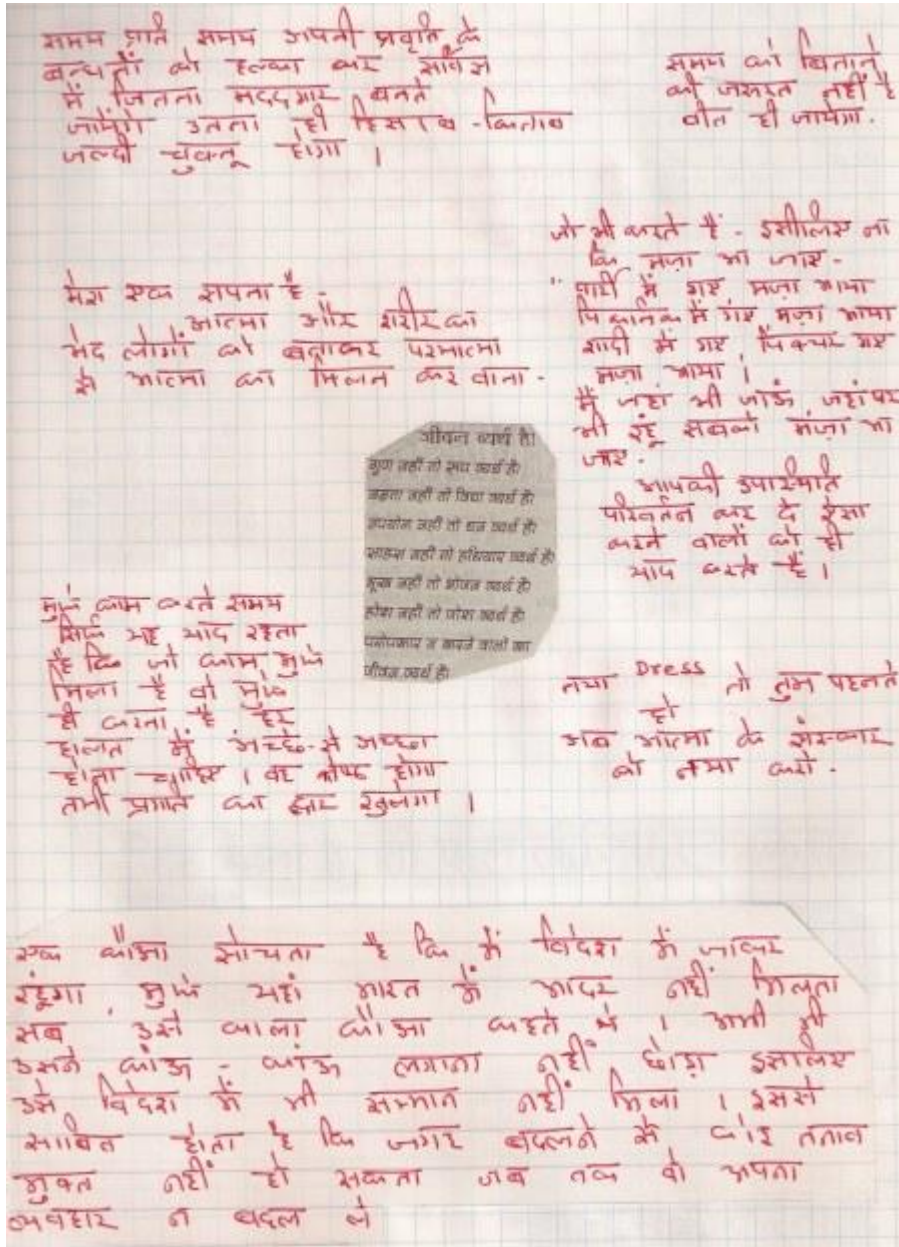 समय प्रति समय अपनी प्रवृति के
बन्धनों को हल्का कर सर्विस
में जितना मददगार बनते
जायेंगे उतना ही हिसाब-किताब
जल्दी चुक्तू होगा ।
समय को बिताने
की जरूरत नहीं है
बीत ही जायेगा.
जो भी करते हैं - इसीलिए ना
कि मज़ा आ जाए -
" पार्टी में गए मज़ा आया
पिकनिक में गए मज़ा आया
शादी में गए, पिक्चर गए
मज़ा आया ।
मैं जहां भी जाऊं जहां पर
भी रंहू सबको मज़ा आ
जाए.
आपकी उपस्थिति
परिवर्तन कर दे ऐसा
करने वालों को ही
याद करते हैं ।
मेरा एक सपना है -
आत्मा और शरीर का
भेद लोगों को बताकर परमात्मा
से आत्मा का मिलन करवाना -
जीवन व्यर्थ है।
गुण नहीं तो रूप व्यर्थ है।
नम्रता नहीं तो विद्या व्यर्थ है।
उपयोग नहीं तो धन व्यर्थ है।
साहस नहीं तो हथियार व्यर्थ है।
भूख नहीं तो भोजन व्यर्थ है।
होश नहीं तो जोश व्यर्थ है।
परोपकार न करने वालों का
जीवन व्यर्थ है।
मुझे काम करते समय
सिर्फ यह याद रहता
है कि जो काम मुझे
मिला है वो मुझे
ही करना है हर
हालत में अच्छे-से अच्छा
होना चाहिए । वह श्रेष्ठ होगा
तभी प्रगति का द्वार खुलेगा ।
नया Dress तो तुम पहनते
हो
अब आत्मा के संस्कार
को नया करो.
एक कौआ सोचता है कि मैं विदेश में जाकर
रंहूगा, मुझे यहां भारत में आदर नहीं मिलता
सब उसे काला कौआ कहते थे । अभी भी
उसने कांऊ - कांऊ लगाना नहीं छोड़ा इसलिए
उसे विदेश में भी सम्मान नहीं मिला । इससे
साबित होता है कि जगह बदलने से कोई तनाव
मुक्त नहीं हो सकता जब तक वो अपना
व्यवहार न बदल ले